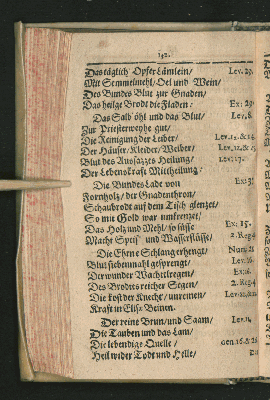 192.
Das täglich Opfer Lämlein/ Lev. 29.
Mit Semmelmehl/ Oel und Wein/
Des Bundes Blut zur Gnaden/
Das heilge Brodt die Fladen: Ex: 29.
Das Salb öhl und das Blut/ Lev. 8.
Zur Priesterweyhe gut/
Die Reinigung der Leiber/ Lev. 12. & 14.
Der Häuser/ Kleider/ Weiber/ Lev. 12. & 15
Blut des Aussazzes Heilung/ Lev. 17.
Der Lebenskraft Mittheilung:
Die Bundes Lade von Ex: 3
Fornholz/ der Gnadenthron/
Schaubrodt auf dem Tisch glenzet/
So mit Gold war umkrenzet/
Das Holz und Mehl/ so süsse Ex: 15.
Macht Speis' und Wasserflüsse/ 2. Reg. 4
Die Ehrne Schlang erhenget/ Num. 21
Blut siebenmahl gesprenget/ Lev. 16.
Der wunder Wachtelregen/ Ex: 16.
Des Brodtes reicher Segen/ 2. Reg. 4
Die kost der Kneche/ unreinen/ Lev.
Kraft in Elisæ Beinen.
Der reine Brun/ und Saam/ Lev. 11.
Die Tauben und das Lam/
Die lebendige Quelle/ gen. 16. & 26
Heil wider Todt und Helle/